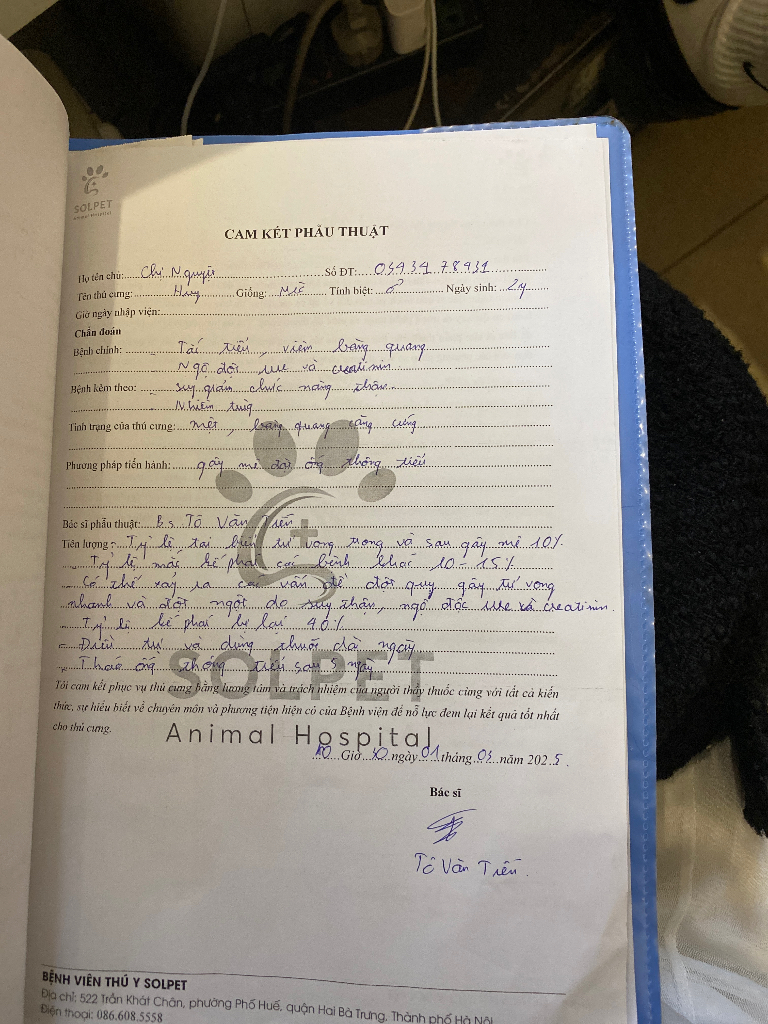 SOLPET
Animal Hospital
CAM KẾT PHẪU THUẬT
Họ tên chủ: Chị Nguyệt Số ĐT: 0343478931
Tên thú cưng: Huy Giống: Mèo Tính biệt: ♂ Ngày sinh: 2y
Giờ ngày nhập viện:
Chẩn đoán
Bệnh chính: Tắc tiểu, viêm bàng quang
Ngộ độc ure và creatinin
Bệnh kèm theo: suy giảm chức năng thận
Nhiễm trùng
Tình trạng của thú cưng: mệt, bàng quang căng cứng
Phương pháp tiến hành: gây mê đặt ống thông tiểu
Bác sĩ phẫu thuật: Bs Tô Văn Tiến
Tiên lượng: - Tỷ lệ tai biến tử vong trong và sau gây mê 10%
- Tỷ lệ mắc kế phát các bệnh khác 10 - 15%
- Có thể xảy ra các vấn đề đột quỵ gây tử vong
nhanh và đột ngột do suy thận, ngộ độc ure và creatinin.
- Tỷ lệ kế phát bị lại 40%
- Điều trị và dùng thuốc dài ngày
- Tháo ống thông tiểu sau 5 ngày
Tôi cam kết phục vụ thú cưng bằng lương tâm và trách nhiệm của người thầy thuốc cùng với tất cả kiến
thức, sự hiểu biết về chuyên môn và phương tiện hiện có của Bệnh viện để nỗ lực đem lại kết quả tốt nhất
cho thú cưng.
SOLPET
Animal Hospital
10 Giờ 30 ngày 01 tháng 03 năm 2025.
Bác sĩ
Tô Văn Tiến.
BỆNH VIỆN THÚ Y SOLPET
Địa chỉ: 522 Trần Khát Chân, phường Phố Huế, quận Hai Bà Trưng, Thành phố Hà Nội
Điện thoại: 086.608.5558